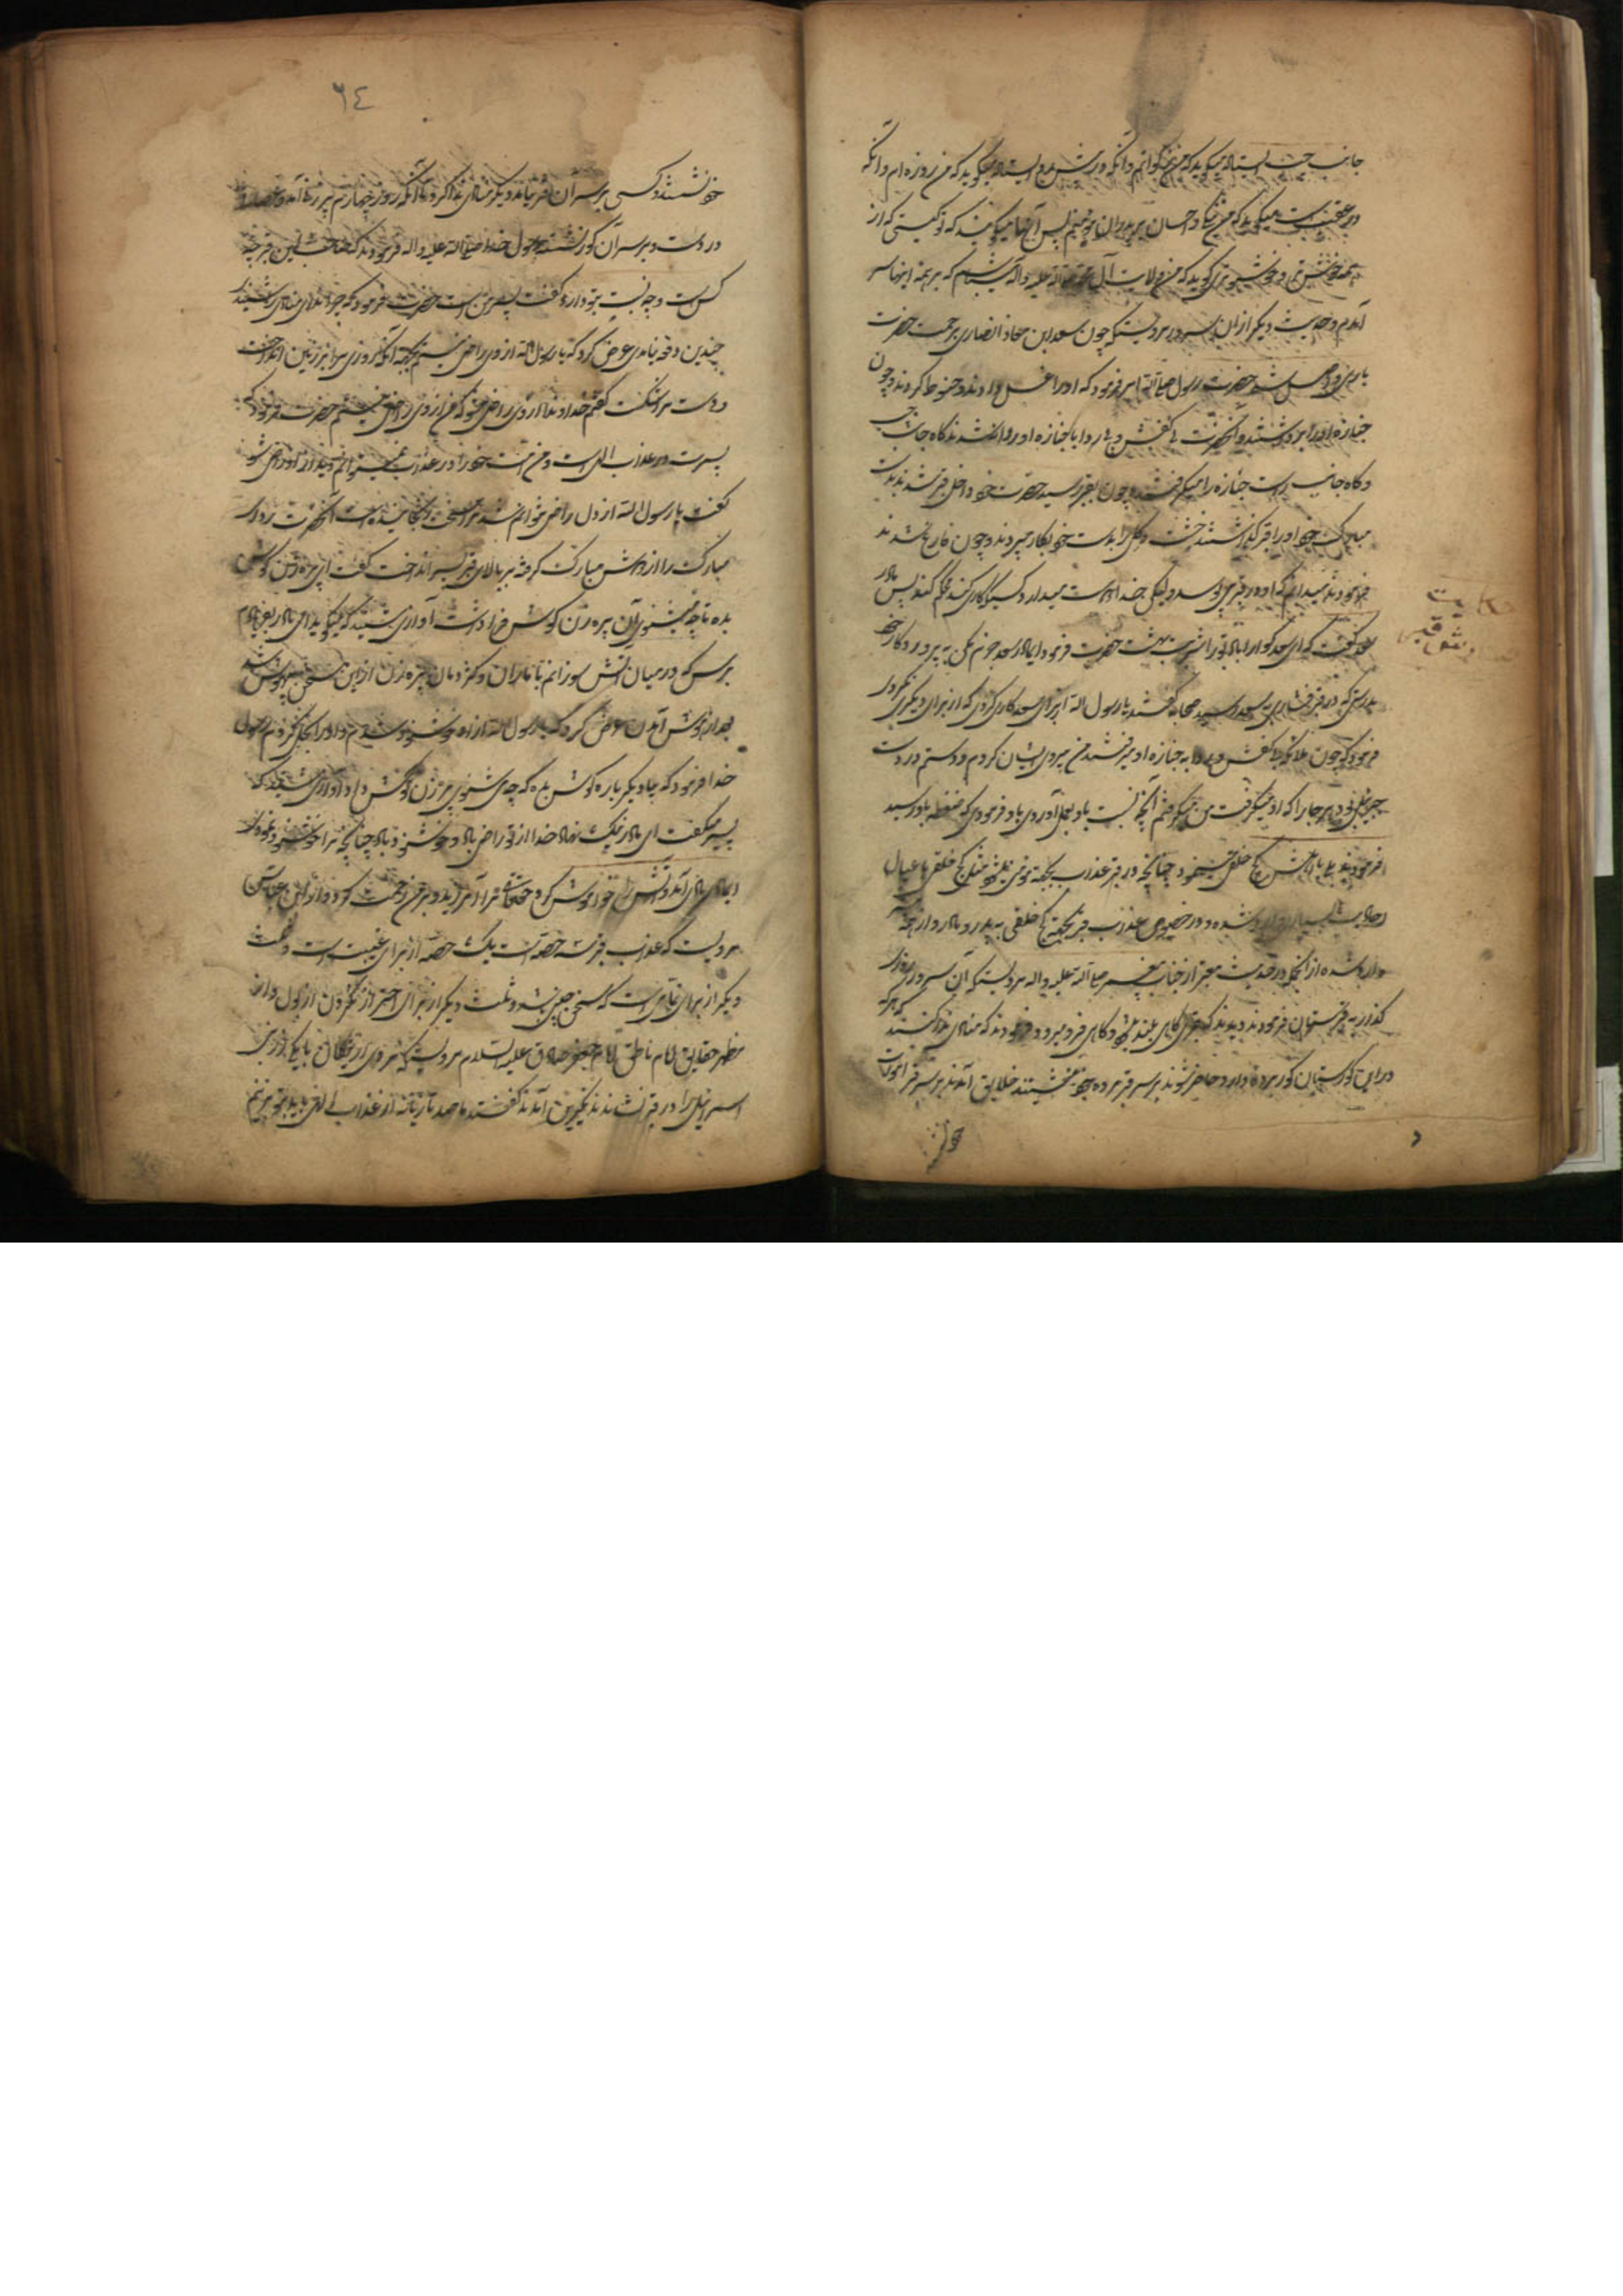 جانب چپ ایستاده میگوید که من زکوتم و آنکه در پیش رو ایستاده میگوید که من روزه ام و آنکه
در عقبست میگوید که من حج و احسان بر برادران مؤمنم پس آنها میگویند که تو کیستی که از
همه خوش تر و خوشبوتری گوید که من ولایت آل محمد صلی الله علیه و آله میباشم که بر همه اینها سر
آمدم و حدیث دیگر از آن سرور مرویست که چون سعد ابن معاذ انصاری برحمت حضرت
باری واصل شد حضرت رسول صلی الله امر فرمود که او را غسل دادند و حنوط کردند و چون
جنازه او را برداشتند و آنحضرت بی کفش و بی ردا با جنازه او روانه شدند گاه جانب چپ
و گاه جانب راست جنازه را میگرفتند و چون بقبر رسید حضرت خود داخل قبر شدند بدست
مبارک خود او را در قبر گذاشتند خشت و گل را بدست خود بکار میبردند و چون فارغ شدند
فرمودند میدانم که او در قبر می پوسد ولیکن خدا دوست میدارد کسی که کاری کند محکم کند پس مادر
سعد گفت که ای سعد گوارا باد تو را شربت بهشت حضرت فرمود ای مادر سعد جزم مکن به پروردگار خود
بدرستی که در قبر فشاری به سعد رسید صحابه گفتند یا رسول الله از برای سعد کاری کردی که از برای دیگری نکردی
فرمود که چون ملائکه بی کفش و بی ردا به جنازه او میرفتند من پیروی ایشان کردم و دستم در دست
جبرئیل بود هر جا را که او میگرفت من میگرفتم آنچه نسبت باو بعمل آوردی باو فرمودی که ضغطه باو رسید
فرمودند بلی با اهلش کج خلقی مینمود چنانچه در قبر عذاب بجهة مؤمن میباشد مثل کج خلقی با عیال
احادیث بسیار وارد شده و در خصوص عذاب قبر بجهة کج خلقی به پدر و مادر و از جمله
وارد شده از آنجمله در حدیث معتبر از جناب پیغمبر صلی الله علیه و آله مرویست که آن سرور روزی
گذار به قبرستان فرمودند و دیدند که قبری گاهی بلند میشود و گاهی فرو میرود و فرمودند که منادی ندا کند که هر که
در این گورستان گور مرده دارد حاضر شوند بر سر قبر مرده خود بنشینند خلایق آمدند بر سر قبر اموات
حکایت
خود
٦٤
خود نشستند و کسی بر سر آن قبر نیامد دیگر منادی ندا کرد تا آنکه روز چهارم پیر زنی آمد و عصا
در دست و بر سر آن گور نشست رسول خدا صلی الله علیه و آله فرمودند که صاحب این قبر چه
کس است و چه نسبت بتو دارد گفت پسر من است حضرت فرمود که چرا ندای منادی شنیدی
چندین دفعه نیامدی عرض کرد که یا رسول الله از وی راضی نیستم بجهة آنکه روزی مرا بر زمین انداخت
و دست مرا شکست گفتم خداوندا از وی راضی مشو که من از وی راضی نیستم حضرت فرمود که
پسرت در عذاب الهی است و من امت خود را در عذاب نمیتوانم دید از او راضی شو
گفت یا رسول الله از دل راضی نتوانم شد مرا سخت رنجانیده است آنحضرت ردای
مبارک را از دوش مبارک گرفته بر بالای قبر پسر انداخت گفت ای پیره زن گوش
بده تا چه میشنوی آن پیره زن گوش فرا داشت آوازی شنید که میگوید ای مادر بفریادم
برس که در میان آتش سوزانم با ماران و کژدمان پیره زن از این سخن بیهوش شد
بعد از بهوش آمدن عرض کرد که یا رسول الله از او خوشنود شدم و او را بحل کردم رسول
خدا فرمود که بیا دیگر باره گوش بده که چه می شنوی پیر زن گوش داد آوازی شنید که
پسر میگفت ای مادر نیک نهاد خدا از تو راضی باد و خوشنود باد چنانچه مرا خوشنود نمودی
ای مادر بادی آمد و آتش را خواموش کرد حقتعالی مرا آمرزید و بر من رحمت کرد و از ابن عباس
مرویست که عذاب قبر سه حصه است یک حصه از برای غیبت است و ثلث
دیگر از برای نمامی است که سخن چینی باشد و ثلث دیگر از برای احتراز نکردن از بول و از
مظهر حقایق امام ناطق امام جعفر صادق علیه السلام مرویست که مردی از نیکان یا یکی از بنی
اسرائیل را در قبر نشاندند نکیرین آمدند گفتند ما صد تازیانه از عذاب الهی باید بتو بزنیم